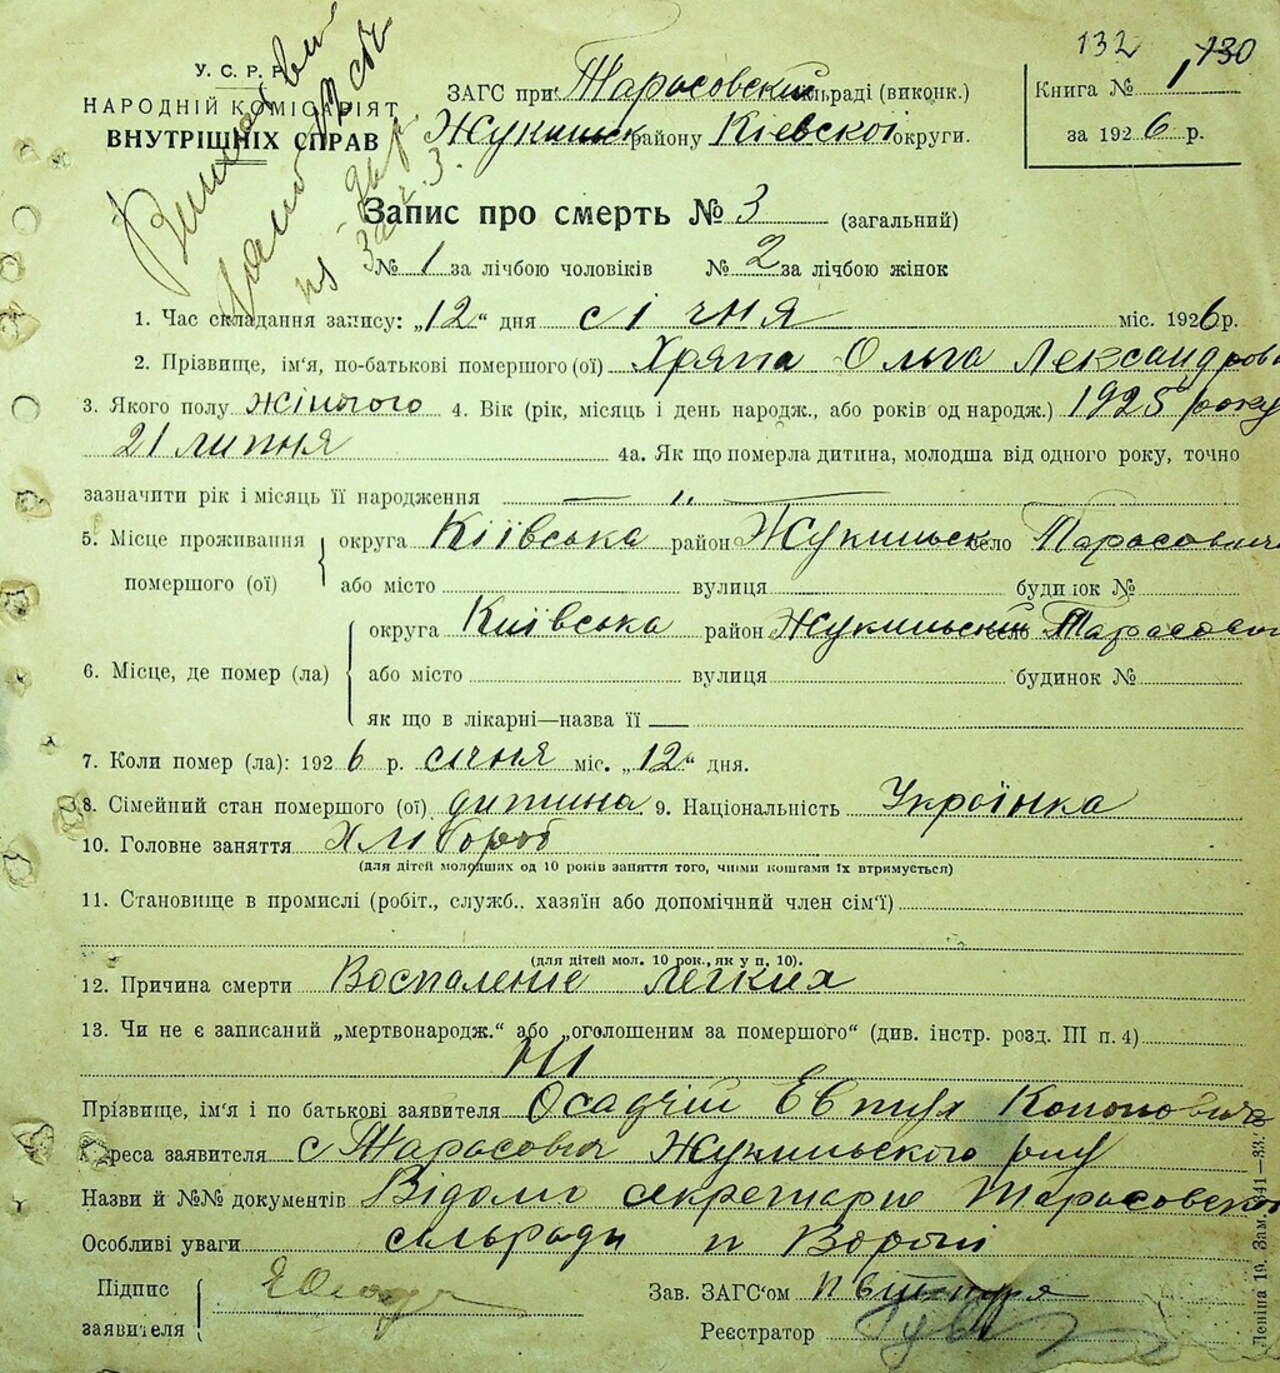 132 130
У. С. Р. Р.
НАРОДНІЙ КОМІСАРІЯТ
ВНУТРІШНІХ СПРАВ
ЗАГС при Тарасовский сільраді (виконк.)
Жукинськ району Кіевскої округи.
Книга № 1
за 1926 р.
Запис про смерть № 3 (загальний)
№ 1 за лічбою чоловіків № 2 за лічбою жінок
1. Час складання запису: „12“ дня січня міс. 1926 р.
2. Прізвище, ім'я, по-батькові помершого (ої) Хряпа Ольга Лександрова
3. Якого полу жіночого 4. Вік (рік, місяць і день народж., або років од народж.) 1925 року
21 липня 4а. Як що померла дитина, молодша від одного року, точно
зазначити рік і місяць її народження — „ —
5. Місце проживання округа Кіївська район Жукинськ село Тарасович
помершого (ої) або місто вулиця будинок №
округа Київська район Жукинський село Тарасович
6. Місце, де помер (ла) або місто вулиця будинок №
як що в лікарні—назва її —
7. Коли помер (ла): 1926 р. січня міс. „12“ дня.
8. Сімейний стан помершого (ої) дитина 9. Національність Українка
10. Головне заняття Хлібороб
(для дітей молодших од 10 років заняття того, чиїми коштами їх втримується)
11. Становище в промислі (робіт., служб., хазяїн або допомічний член сім'ї)
(для дітей мол. 10 рок., як у п. 10).
12. Причина смерти Воспаленіе легких
13. Чи не є записаний „мертвонародж.“ або „оголошеним за помершого“ (див. інстр. розд. III п. 4)
Ні
Прізвище, ім'я і по батькові заявителя Осадчій Евтух Кононович
Адреса заявителя с Тарасовичі Жукинського р-ну
Назви й №№ документів Відомо секретарю Тарасовской
Особливі уваги сельради
Підпис заявителя
Зав. ЗАГС'ом
Реєстратор
Леніна 19. Зам. 41—33.